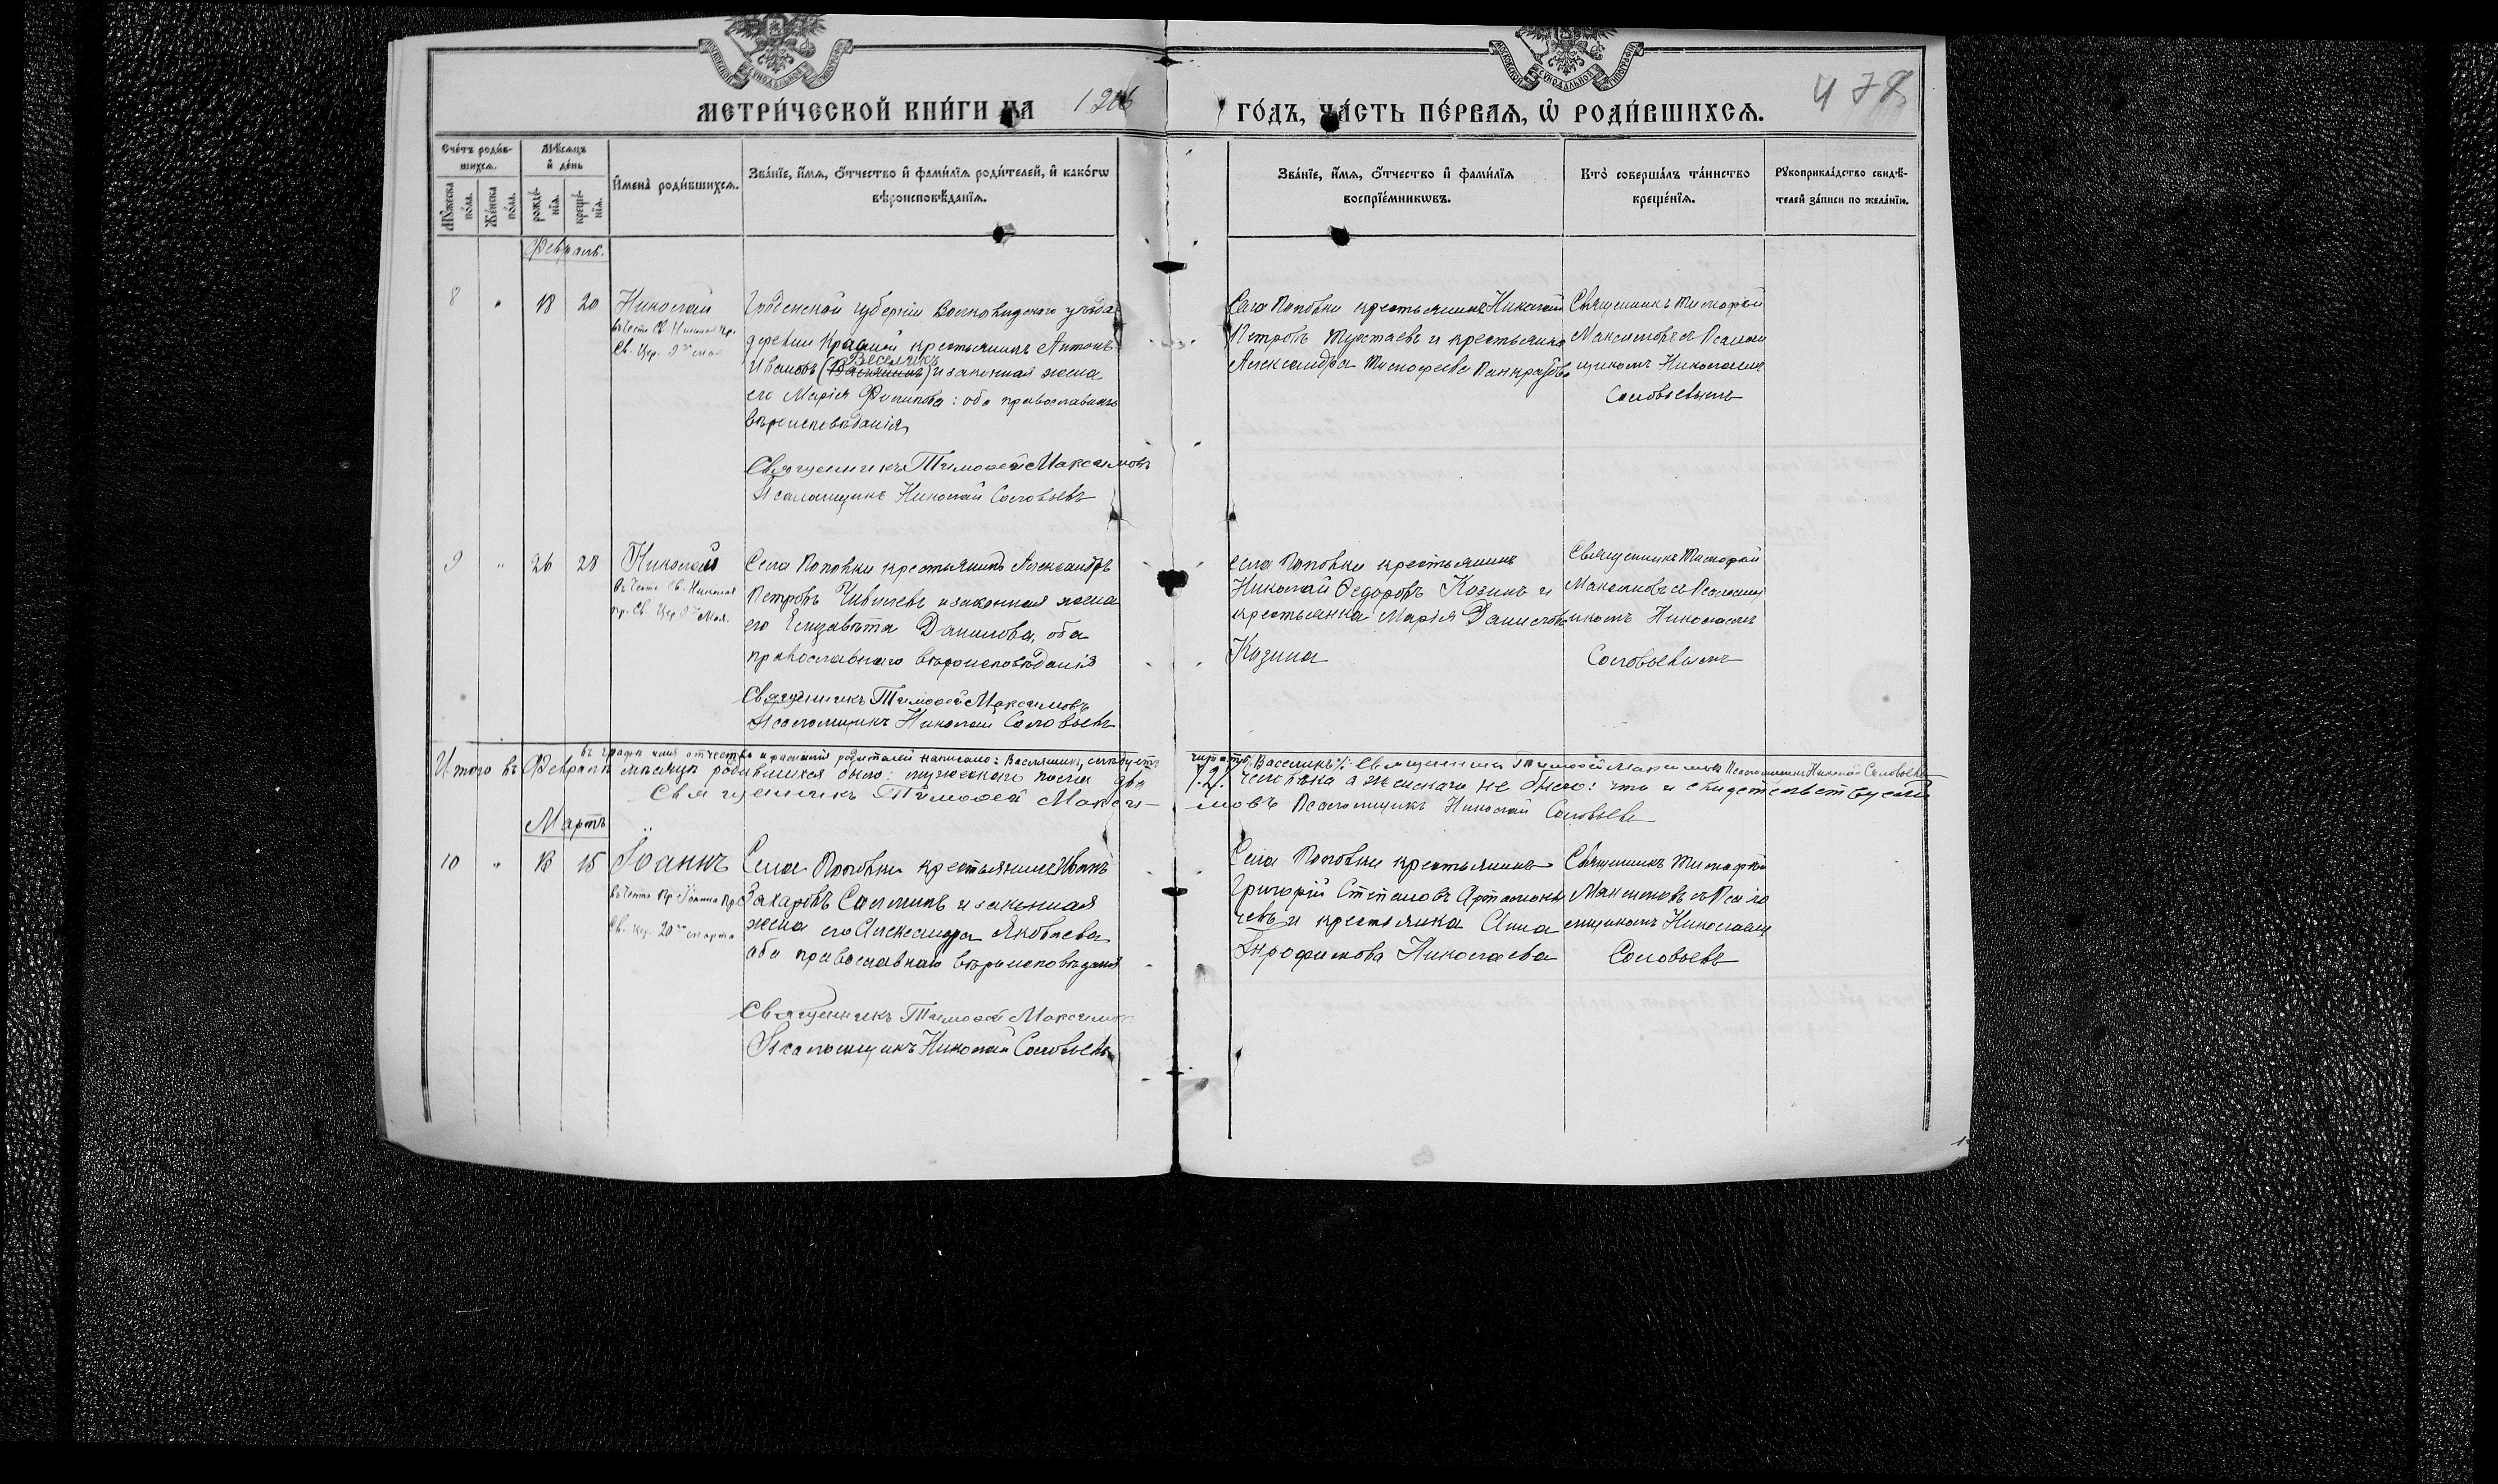 МЕТРИ́ЧЕСКОЙ КНИ́ГИ НА 1906 ГО́ДЪ, ЧА́СТЬ ПЕ́РВАЯ, Ѡ РОДИ́ВШИХСЯ.
478
Сче́тъ роди́в-
шихся.
Му́жеска по́ла.
Же́нска по́ла.
Мѣ́сяцъ
и де́нь
рожде́-
нїя.
креще́-
нїя.
Имена̀ роди́вшихся.
Зва́нїе, и́мя, о́тчество и фами́лїя роди́телей, и како́гѡ
вѣроисповѣ́данїя.
Зва́нїе, и́мя, о́тчество и фами́лїя
воспрїе́мникѡвъ.
Кто̀ соверша́лъ та́инство
креще́нїя.
Рꙋкоприкла́дство свидѣ́-
телей за́писи по жела́нїю.
Февраль.
8 " 18 20
Николай
въ честь Св. Николая
Св. Цер. 9го мая
губерніи уѣзда
деревни крестьянинъ Антонъ
Веселикъ
Ивановъ и законная жена
его Марія Филипова: оба православнаго
вѣроисповѣданія
Священникъ Тимоѳей Максимовъ
Псаломщикъ Николай Соловьевъ
Села Поповки крестьянинъ Николай
Петровъ и крестьянка
Александра Тимофеева Панкратова
Священникъ Тимофей
Максимовъ съ Псалом
щикомъ Николаемъ
Соловьевымъ
9 " 26 28
Николай
въ честь Св. Николая
пр. Св. Цер. 9го Мая.
Села Поповки крестьянинъ Александръ
Петровъ и законная жена
его Елизавета Данилова, оба
православнаго вѣроисповѣданія
Священникъ Тимоѳей Максимовъ
Псаломщикъ Николай Соловьевъ
села Поповки крестьянинъ
Николай Ѳедоровъ Козинъ и
крестьянка Марія Данилова
Козина
Священникъ Тимофей
Максимовъ съ Псаломщ
икомъ Николаемъ
Соловьевымъ
въ графѣ имя отчество и фамилія родителей написано: слѣдуетъ читать: Священникъ Тимоѳей Максимовъ Псаломщикъ Николай Соловьевъ
Итого въ Февралѣ мѣсяцѣ родившихся было: мужескаго пола два /2/ человѣка а женскаго не было: что и свидетельствуемъ
Священникъ Тимоѳей Максимовъ Псаломщикъ Николай Соловьевъ
Мартъ
10 " 13 15
Іоаннъ
въ честь Пр. Іоанна
Св. Цер. 20го марта
Села Поповки крестьянинъ Иванъ
Захаровъ и законная
жена его Александра Яковлева
оба православнаго вѣроисповѣданія
Священникъ Тимоѳей Максимовъ
Псаломщикъ Николай Соловьевъ
Села Поповки крестьянинъ
Григорій Степановъ Артамоны
чевъ и крестьянка Анна
Трофимова Николаева
Священникъ Тимофей
Максимовъ съ Псало
мщикомъ Николаемъ
Соловьевъ